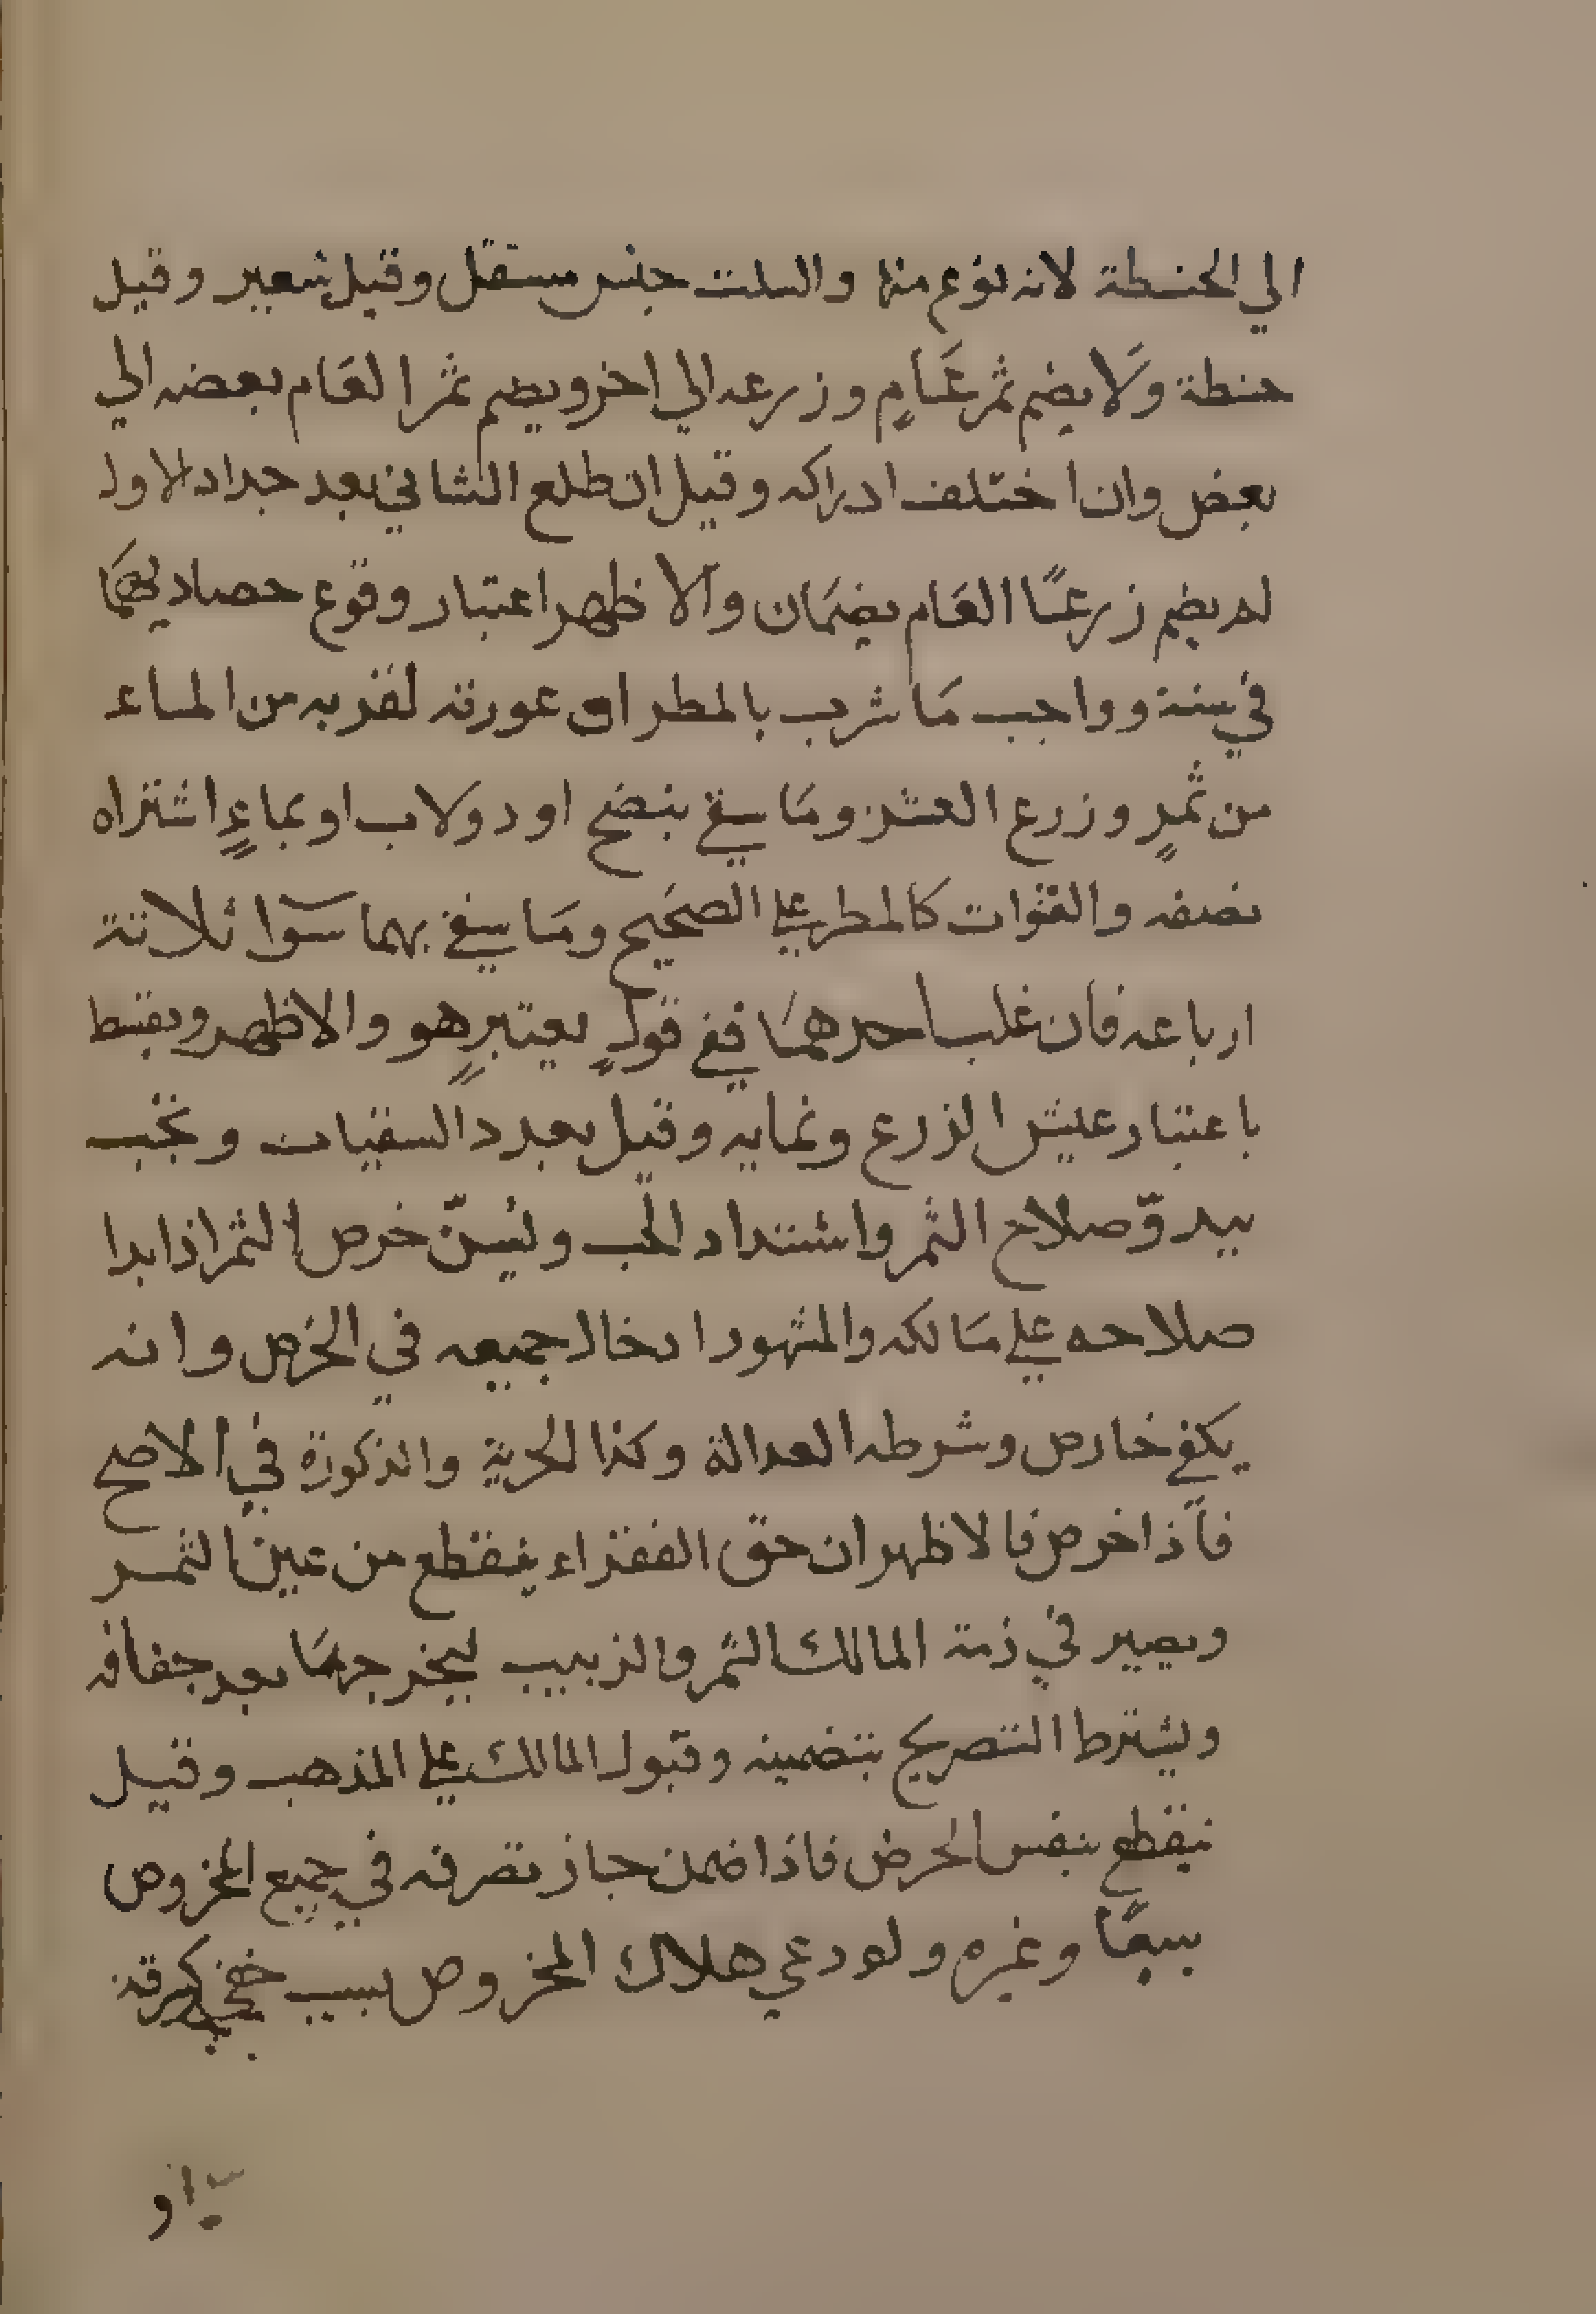 الي الحنطة لانه نوع منها والسلت جنس مستقل وقيل شعير وقيل
حنطة وَلا يضم ثمر عَامٍ وزرعه الي اخر ويضم ثمر العَام بعضه الي
بعض وان اختلف ادراكه وقيل ان طلع الثاني بعد جداد الاول
لم يضم زرعًا العَام يضمَان والاظهر اعتبار وقوع حصاديهمَا
في سنة وواجب مَا شرب بالمطر او عورته لقربه من الماء
من ثمرٍ وزرع العشر ومَا سقي بنضح او دولاب او بماءٍ اشتراه
نصفه والقنوات كالمطر علي الصحيح ومَا سقي بهما سوآا ثلاثة
ارباعه فان غلب احدهمَا ففي قولٍ يعتبرٍ هو والاظهر ويقسط
باعتبار عيش الزرع ونمايه وقيل بعدد السقيات وتجب
ببدوّ صلاح الثمر واشتداد الحب ويُسنّ خرص الثمر اذا بدا
صلاحه علي مَالكه والمشهور ادخال جميعه في الخرص وانه
يكفي خارص وشرطه العدالة وكذا الحرية والذكورة في الاصح
فاذا خرص فالاظهر ان حق الفقراء ينقطع من عين الثمر
ويصير في ذمة المالك التمر والزبيب ليخرجهمَا بعد جفافه
ويشترط التصريح بتضمينه وقبول المالك علي المذهب وقيل
ينقطع بنفس الخرص فاذا ضمن جاز تصرفه في جميع المخروص
بيعًا وغيره ولو دعي هلاك المخروص بسبب خفي كسرقة
او